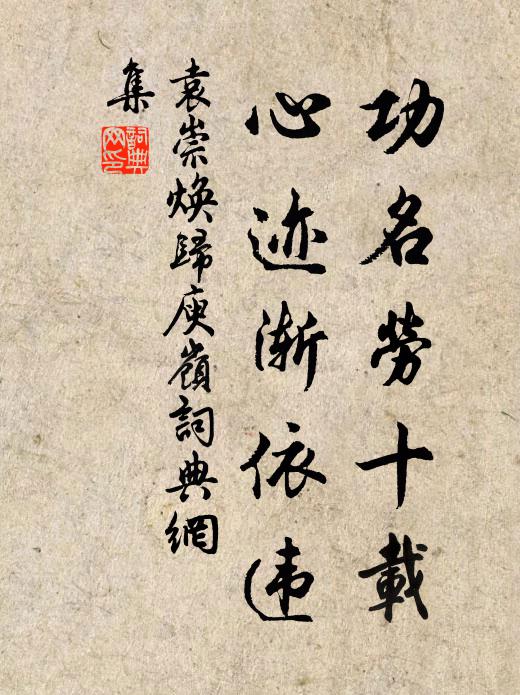 功名勞十載
心迹漸依违
袁崇焕歸庾嶺詞典網
集
詞典
网印